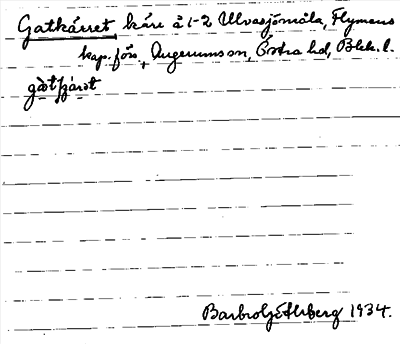 Gatkärret kärr å 1-2 Ulvasjömåla, Flymens
kap. förs., Augerums sn, Östra hd, Blek. l.
1934.